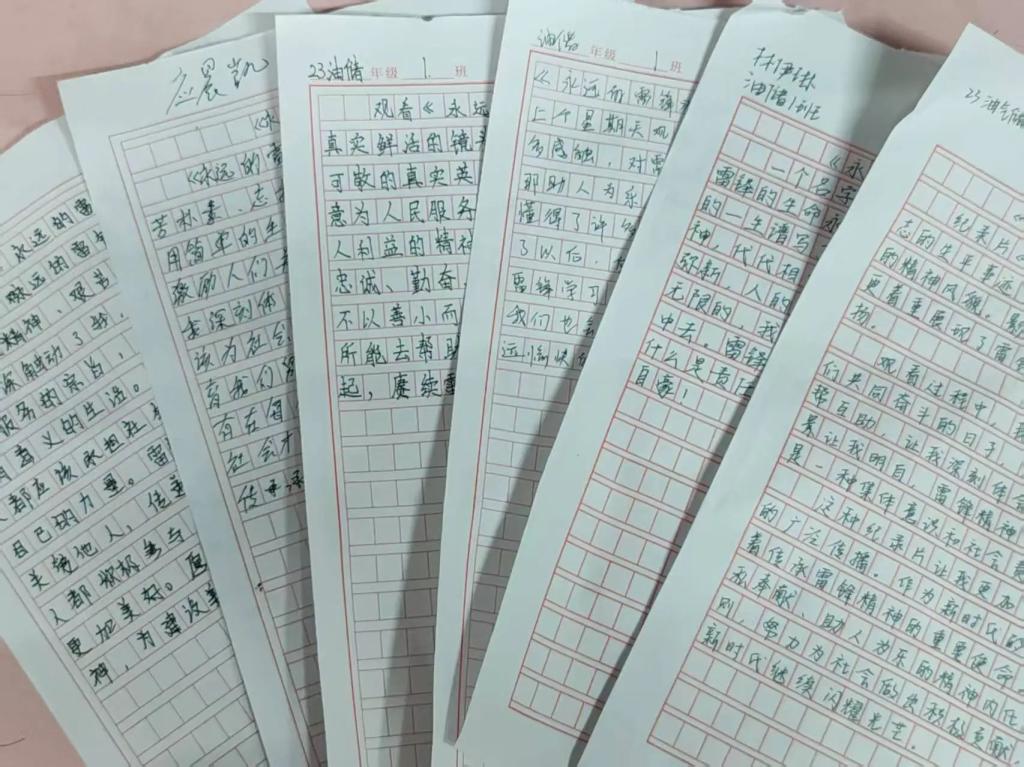 永远的雷
永远的雷锋
精神、艰苦
深触动了我,
服务的宗旨,
有意义的生活。
人都应该承担社
自己的力量。雷
关镜他人,传
人都积极参与
更加美好。
神,为建设美
应晨凯
《永
《永远的雷
苦朴素、忘
用简单的生
激励人们
求深刻体
该为社会
有我们
有在每
社会才
传承
23油储年级 1. 班
观看《永远
真实鲜活的镜头
可敬的真实英
意为人民服务
人利益的精神
忠诚、勤奋,
不以善小而
所能去帮助
起,赓续雷
油储 年级 1 班
《永远的雷锋
上个星期天观
多感触,对雷
那助人为乐
懂得了许多
了以后,
雷锋学习
我们也会
远小
林伊
油储1班
《永
一个名字
雷锋的生命
的一生谱写
神,代代相
弥新,人的
无限的,我
中去。雷锋
什么是责任
自豪!
23油气储
纪录片《
志的生平事迹
的精神风貌。
更着重展现了雷
扬。
观看过程中,
们共同奋斗的日子,
帮互助,让我深刻体会
景让我明白,雷锋精神
是一种集体意识和社会责
这种纪录片让我更加
的广泛传播。作为新时代的
着传承雷锋精神的重要使命
私奉献、助人为乐的精神内化
则,努力为社会做出积极贡献,
新时代继续闪耀光芒。